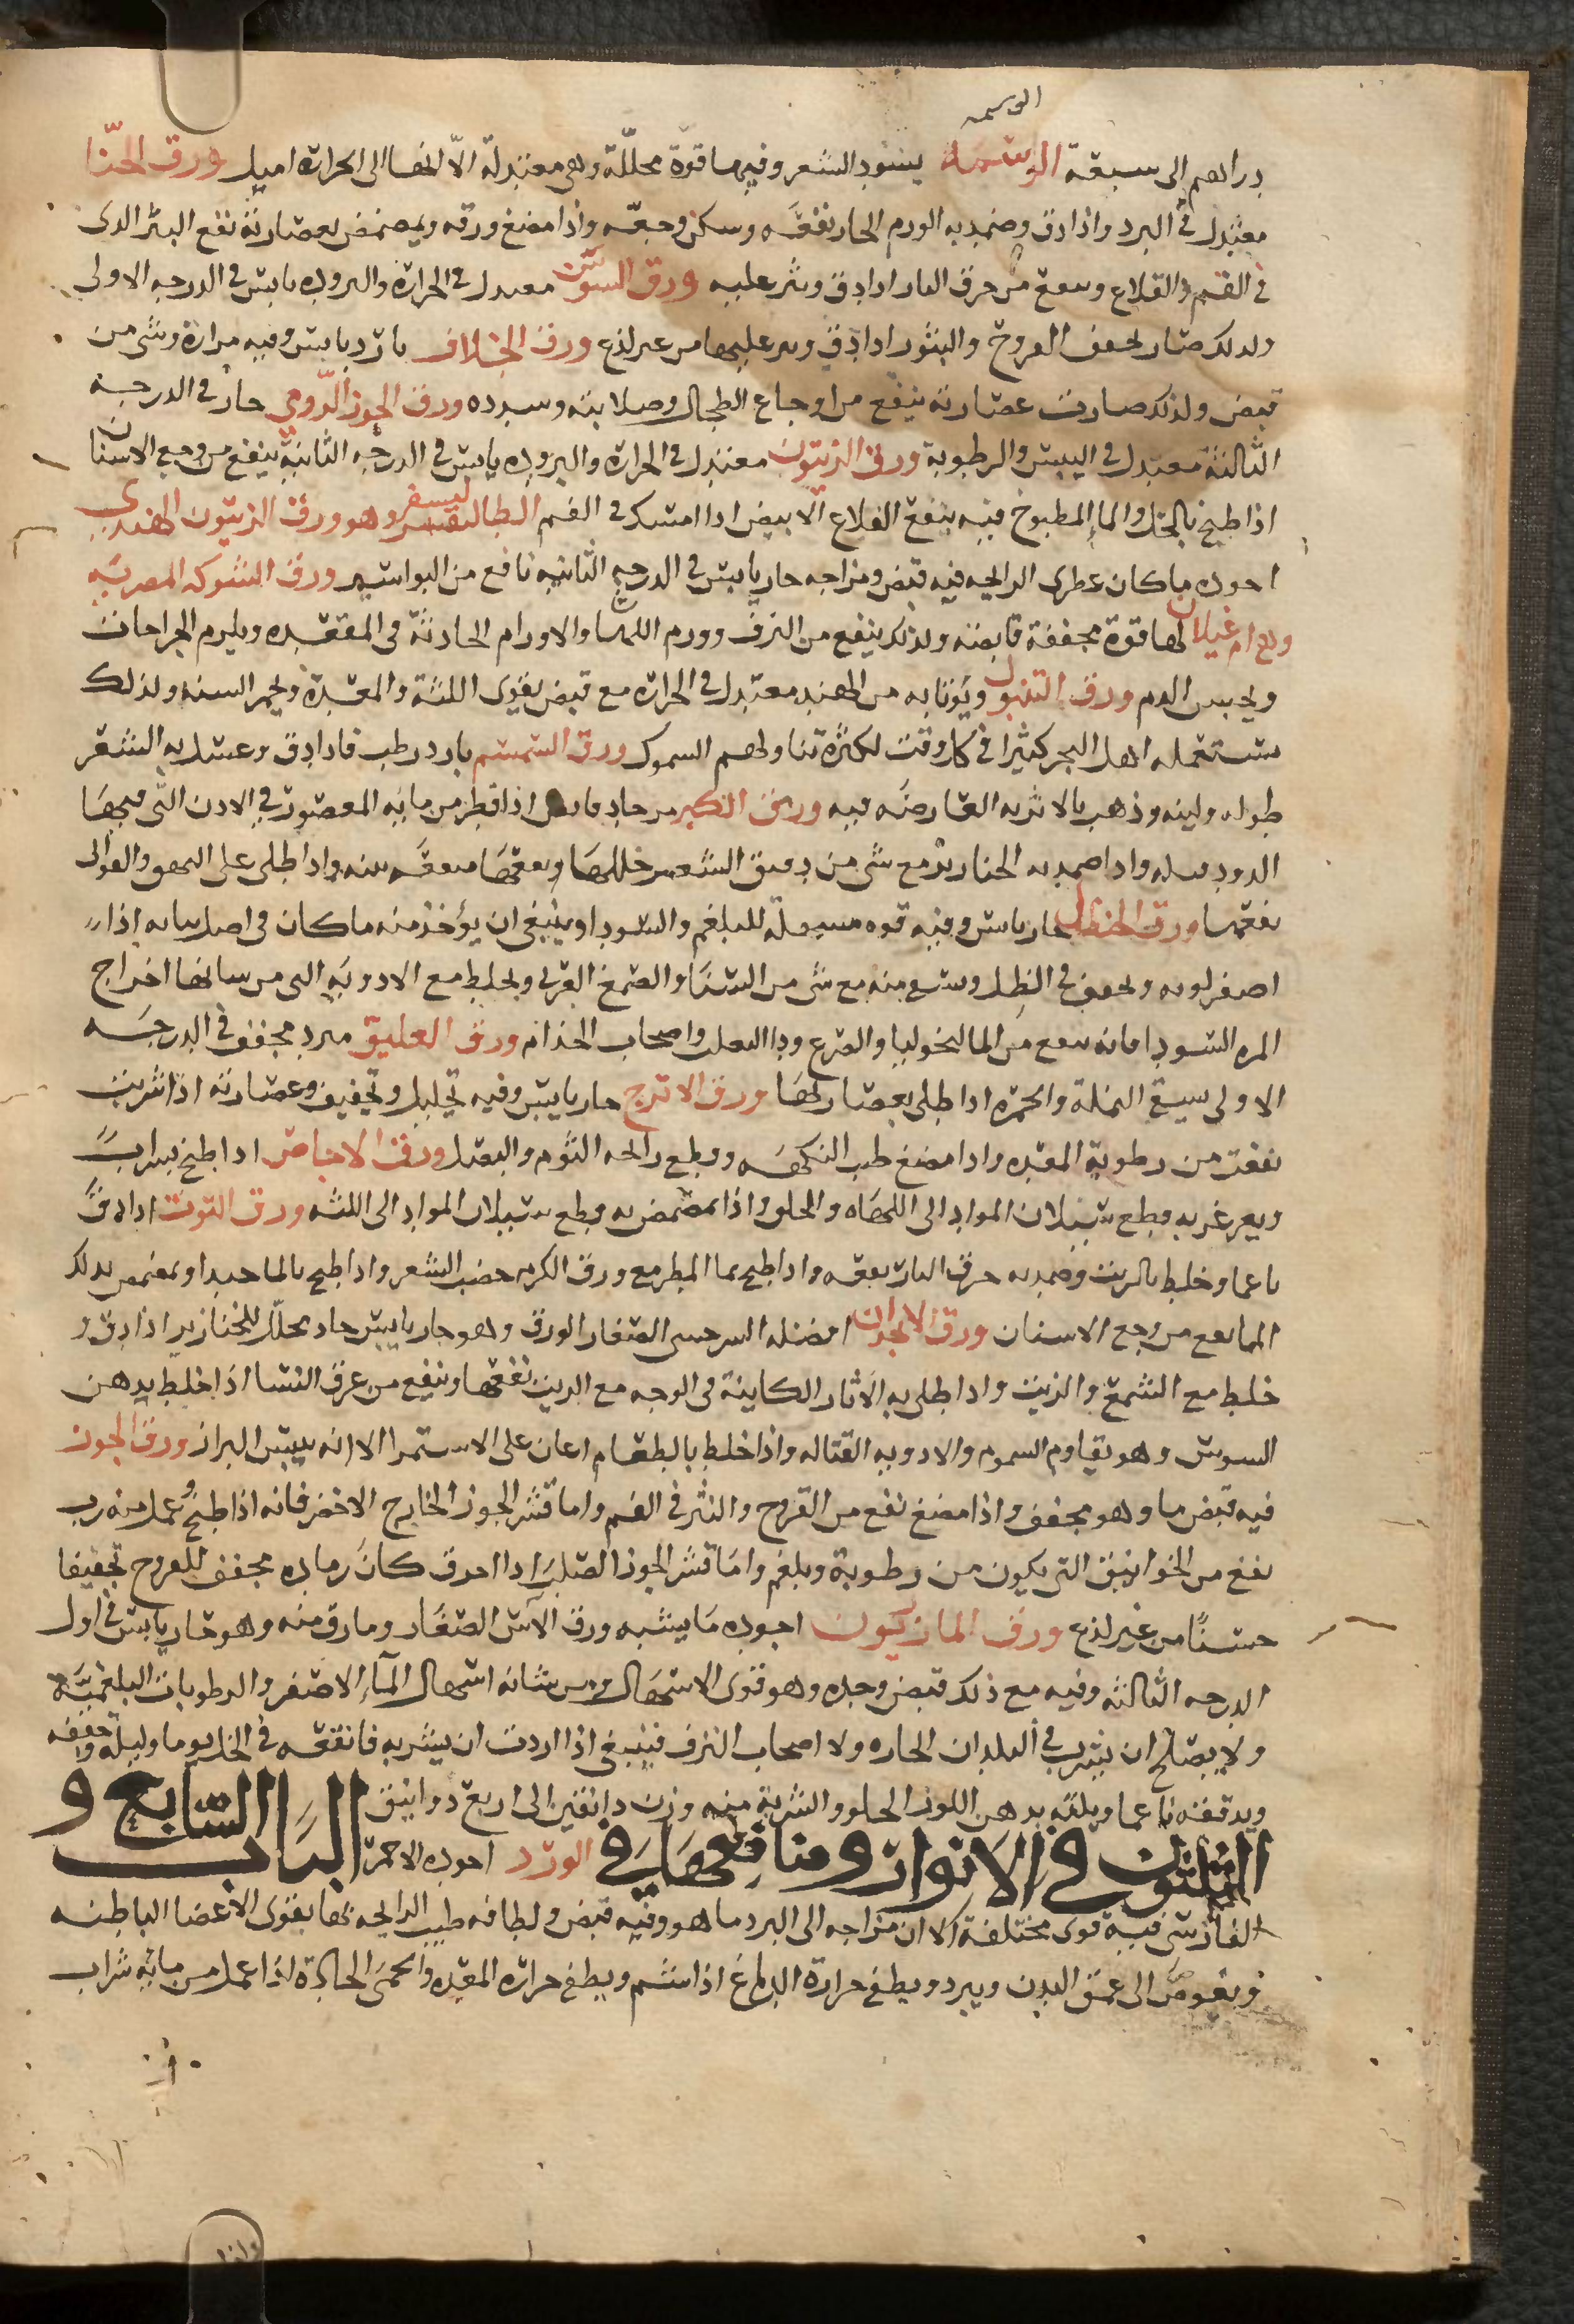 الوسمه
دراهم الى سبعة الوسمة يسود الشعر وفيها قوة محللة وهى معتدلة الّا انها الى الحرارة اميل ورق الحنّا
معتدل فى البرد واذا دق وضمد به الورم الحار نفعه وسكن وجعه واذا مضغ ورقه وتمضمض بعصارته نفع البثر الذى
فى الفم والقلاع وينفع من حرق النار اذا دق ونثر عليه ورق السوسن معتدل فى الحرارة والبروده يابس فى الدرجه الاولى
ولذلك صار يجفف القروح والبثور اذا دق ونثر عليها من غير لذع ورق الخلاف بارد يابس وفيه مرارة وشى من
قبض ولذلك صارت عصارته ينفع من اوجاع الطحال وصلابته وسدده ورق الجوز الرومى حار فى الدرجة
الثالثة معتدل فى اليبس والرطوبة ورق الزيتون معتدل فى الحرارة والبروده يابس فى الدرجه الثانية ينفع من وجع الاسنان
اذا طبخ بالخل والماإ المطبوخ فيه ينفع القلاع الابيض اذا امسك فى الفم الطاليسفر وهو ورق الزيتون الهندى
اجوده ما كان عطرى الرايحه فيه قبض ومزاجه حار يابس فى الدرجه الثانيه نافع من البواسير ورق الشوكه المصريه
وهى ام غيلان لها قوة مجففة قابضه ولذلك ينفع من النزف وورم اللهاة والاورام الحادثة فى المقعده ويلزم الجراحات
ويحبس الدم ورق التنبول ويؤتا به من الهند معتدل فى الحرارة مع قبض يقوى اللثة والمعدة ويحمر السنه ولذلك
يستعمله اهل البحر كثيرا فى كل وقت لكثرة تناولهم السموك ورق السمسم بارد رطب فاذا دق وغسل به الشعر
طوله ولينه وذهب بالاثريه العارضه فيه ورق الكبر مر حاد قابض اذا قطر من مائه المعصور فى الاذن التى فيها
الدود قتله واذا ضمد به الخنازير مع شى من دقيق الشعير حللها ونفعها منفعة بينه واذا طلى على البهق والقوابى
نفعها ورق الحنظل حار يابس وفيه قوه مسهلة للبلغم والسودا وينبغى ان يؤخذ منه ما كان فى اصل نباته اذا
اصفر لونه ويجفف فى الظل ويستعمل منه مع شى من النشا والصمغ العربى ويخلط مع الادويه التى من شانها اخراج
المره السودا فانه ينفع من المالنخوليا والصرع ودا الثعلب واصحاب الجذام ورق العليق مبرد مجفف فى الدرجه
الاولى ينفع النملة والحمره اذا طلى بعصارتها ورق الاترج حار يابس وفيه تحليل وتجفيف وعصارته اذا شربت
نفعت من رطوبة المعده واذا مضغ طيب النكهه وقطع رائحه الثوم والبصل ورق الاجاص اذا طبخ بشراب
وتغرغر به قطع سيلان المواد الى اللهاه والحلق واذا تمضمض به قطع سيلان المواد الى اللثه ورق التوت اذا دق
ناعما وخلط بالزيت وضمد به حرق النار نفعه واذا طبخ بما المطر مع ورق الكرم خضب الشعر واذا طبخ بالما جيدا وتمضمض بذلك
الما نفع من وجع الاسنان ورق الانجدان افضله السرخسى الصغار الورق وهو حار يابس حاد محلل للخنازير اذا دق و
خلط مع الشمع والزيت واذا طلى به الاثار الكاينة فى الوجه مع الزيت نفعها وينفع من عرق النسا اذا خلط بدهن
السوسن وهو يقاوم السموم والادويه القتاله واذا خلط بالطعام اعان على الاستمرا الا انه ييبس البراز ورق الجوز
فيه قبض ما وهو مجفف واذا مضغ نفع من القروح والبثر فى الفم واما قشر الجوز الخارج الاخضر فانه اذا طبخ وعمل منه رب
نفع من الخوانيق التى يكون من رطوبة وبلغم واما قشر الجوز الصلب اذا احرق كان رماده مجفف للقروح تجفيفا
حسنًا من غير لذع ورق المازريون اجوده ما يشبه ورق الآس الصغار وما رق منه وهو حار يابس فى اول
الدرجه الثالثه وفيه مع ذلك قبض وحده وهو قوى الاسهال ومن شانه اسهال الماء الاصفر والرطوبات البلغمية
ولا يصلح ان يشرب فى البلدان الحاره ولا اصحاب النزف فينبغى اذا اردت ان يشربه فانقعه فى الخل يوما وليلة وجففه
ويدققه ناعما ويلته بدهن اللوز الحلو والشربة منه وزن دانقين الى اربع دوانيق الباب السابع و
الثلثون فى الانوار ومنافعها فى الورد اجوده الاحمر
الفارسى فيه قوى مختلفة الا ان مزاجه الى البرد ما هو وفيه قبض ولطافه طيب الرايحه بها يقوى الاعضا الباطنه
ويغوص الى عمق البدن ويبرد ويطفى حرارة الدماغ اذا شم ويطفى حرارة المعده والحمى الحادة اذا عمل من مائه شراب